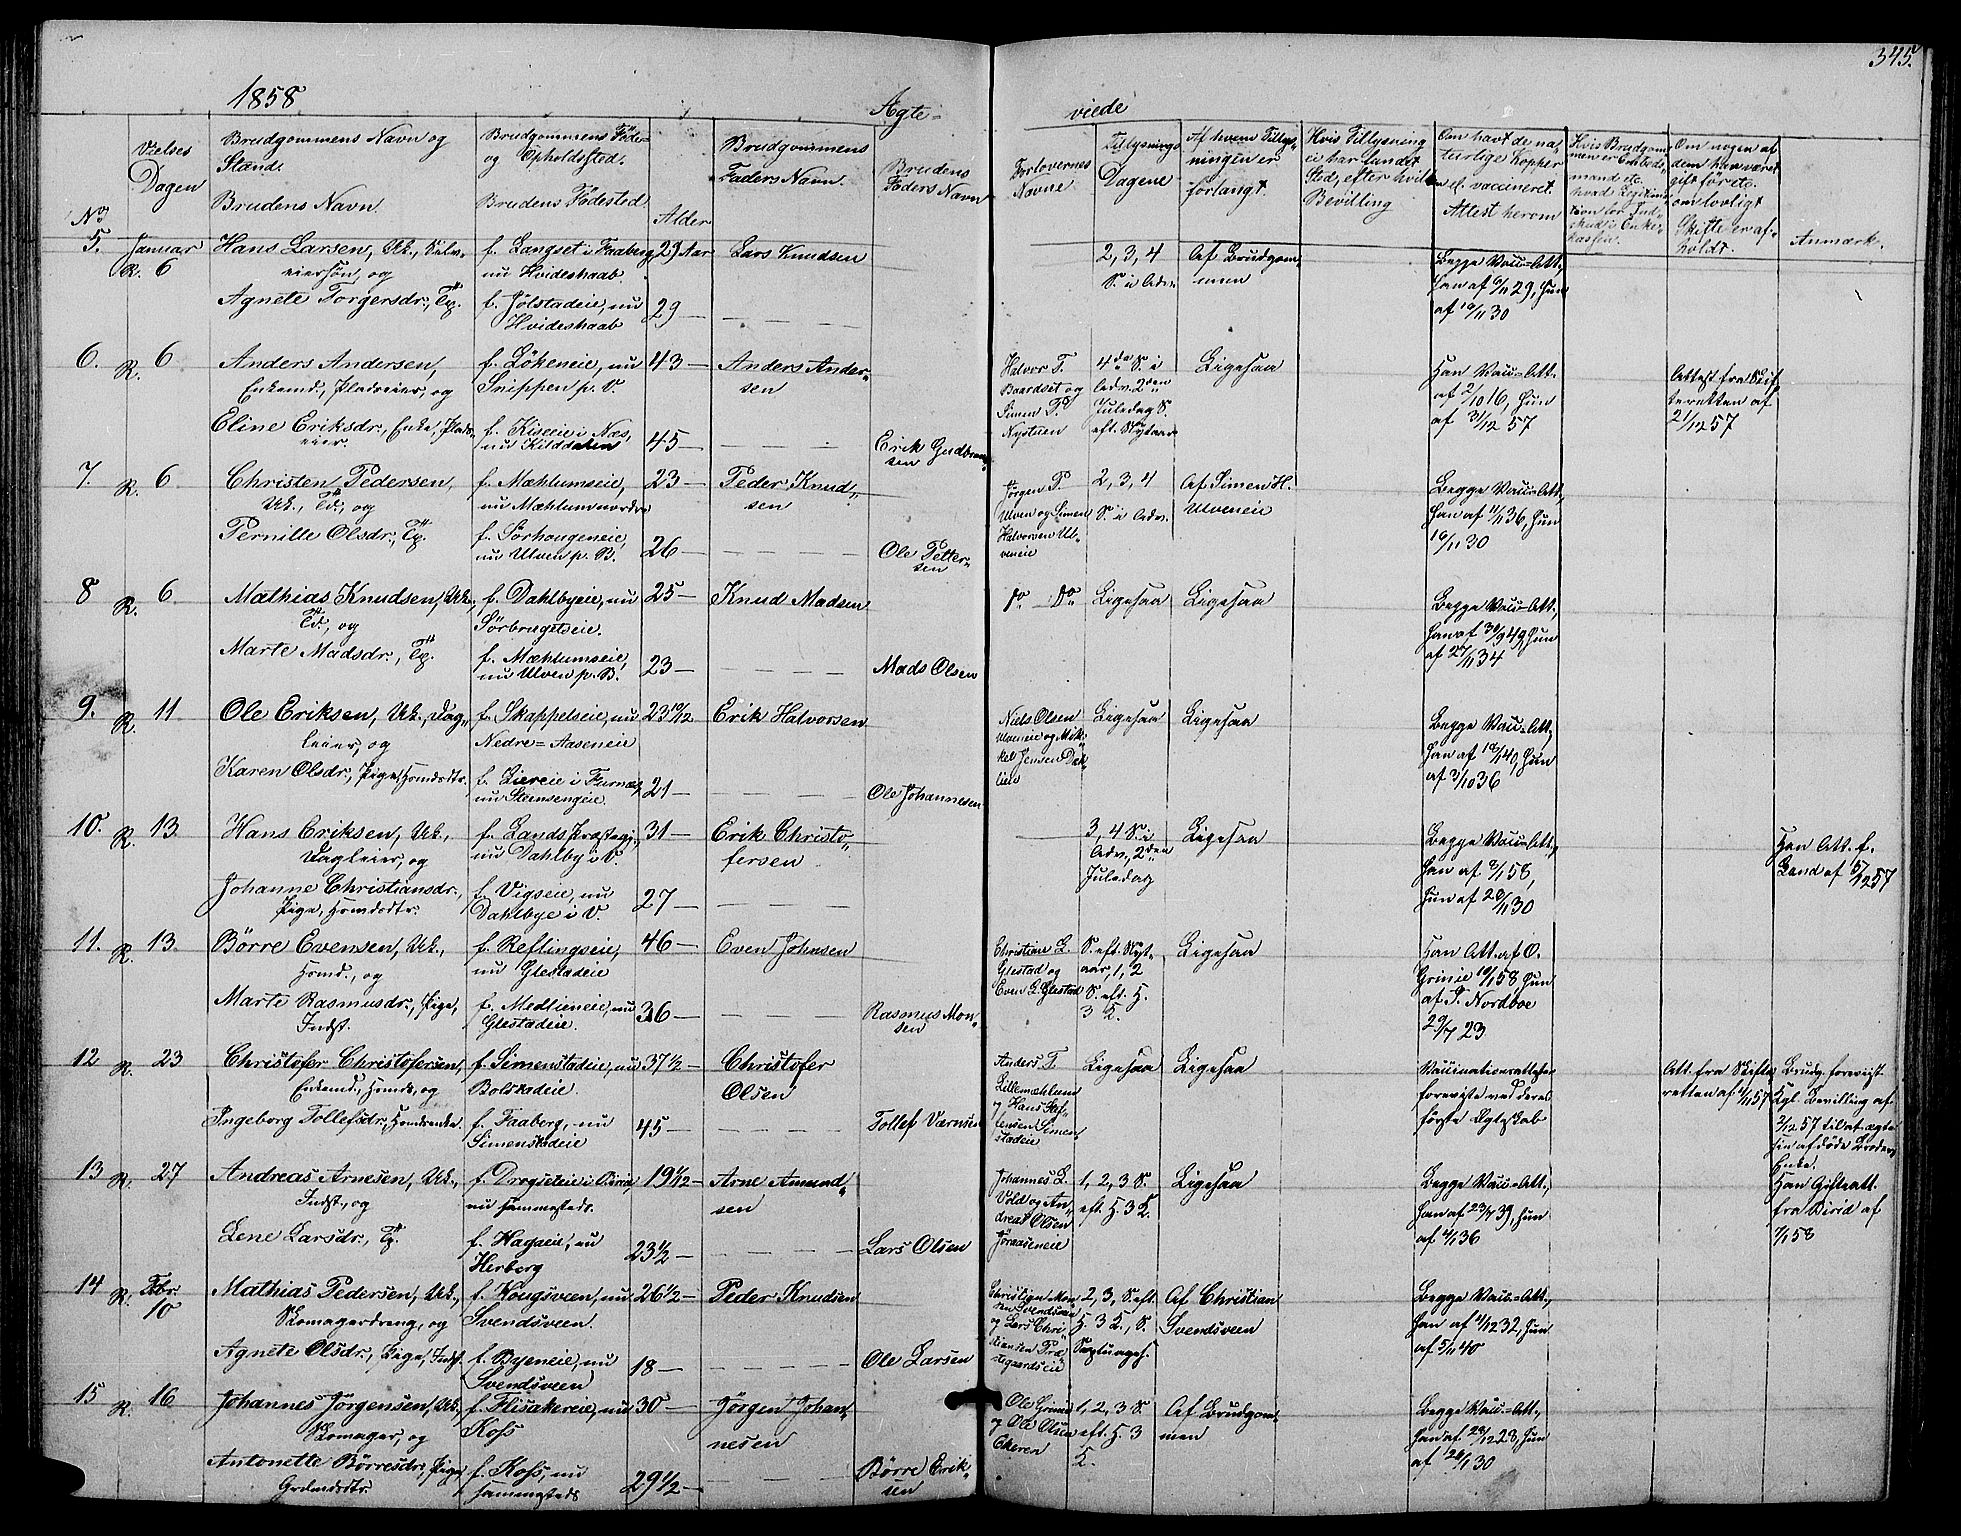 345.
1858
Ægte=
viede
No
Vielses
Dagen
Brudgommens Navn og
Stand.
Brudens Navn.
Brudgommens Föde=
og Opholdsted.
Brudens Födested
Alder
Brudgommens
Faders Navn.
Brudens
Faders Navn
Forlovernes
Navne
Tillysnings
Dagene
Af hvem Tillys,
ningen er
forlangt.
Hvis Tillysning
ei har fundet
Sted, efter hvil
Bevilling
Om havt de na,
turlige Kopper
el. vaccineret.
Attest herom
Hvis Brudgom
men er Enkede,
mand etc.
hvad Legitima
tion for Ind,
skud i Enke,
kassen.
Om nogen af
dem har været
gift för etc.
om lovligt
Skifte er af,
holdt.
Anmærk.
5.
Januar
R. 6
Hans Larsen, Uk., Selv,
eiersön, og
Agnete Torgersdr., Tp.
f. Langset i Faaberg,
nu Hvideshaab
f. Jölstadeie, nu
Hvideshaab
29 Aar
29 —
Lars Knudsen
— — —
2, 3, 4
S. i Adv.
Af Brudgom,
men
Begge Vac.=Att.,
han af 6/11 29, hun
af 10/11 30
6.
R. 6
Anders Andersen,
Enkemd., Pladseier, og
Eline Eriksdr., Enke, Plads,
eier.
f. Lökeneie, nu
Snippen p. V.
f. Kiseeie i Næs,
nu Kilddalen
43 —
45 —
Anders Ander,
sen
— — —
Erik Gudbrand,
sen
Halvor T.
Baardset og
Simen P.
Nystuen
4de S. i
Adv. 2den
Juledag S.
eft. Nytaar
Ligesaa
Han Vac.=Att.
af 2/10 16, hun
af 31/12 57
Attest fra Skif
teretten af
21/12 57
7.
R. 6
Christen Pedersen,
Uk., Td., og
Pernille Olsdr., Tp.
f. Mæhlumseie,
nu Mæhlum nordre
f. Sörhougeneie,
nu Ulven p. B.
23 —
26 —
Peder Knud,
sen
— — —
Ole Petter,
sen
Jörgen P.
Ulven og Simen
Halvorsen Ul,
veneie
2, 3, 4
S. i Adv.
Af Simen H.
Ulveneie
Begge Vac.=Att.,
han af 11/11 36, hun
10/11 30
8
R. 6.
Mathias Knudsen, Uk.,
Td., og
Marte Madsdr., Tp.
f. Dahlbyeie, nu
Sörbrugetseie.
f. Mæhlumseie,
nu Ulven p. B.
25 —
23 —
Knud Madsen
— — —
Mads Olsen
Do. — Do.
Ligesaa
Ligesaa
Begge Vac.=Att.,
han af 30/9 49, hun
af 27/11 34
9.
R. 11
Ole Eriksen, Uk., Dag,
leier, og
Karen Olsdr., Pige, Hsmdsdtr.
f. Skappelseie, nu
Nedre=Aaseneie
f. Liereie i Furnæs,
nu Steensengeie.
23 10/12
21 —
Erik Halvorsen
— — —
Ole Johannesen
Niels Olsen
Ulveneie og Mik,
kel Jensen Dah,
lien
Ligesaa
Ligesaa
Begge Vac.=Att.,
han af 10/11 40, hun
af 3/10 36
10.
R. 13.
Hans Eriksen, Uk.,
Dagleier, og
Johanne Christiansdr.,
Pige, Hsmdsdtr.
f. Lands Præstegj.,
nu Dahlby i V.
f. Vigseie, nu
Dahlbye i V.
31 —
27 —
Erik Christo,
fersen
— — —
3, 4 S. i
Adv., 2den
Juledag
Ligesaa
Begge Vac.=Att.,
han af 3/1 58,
hun af 20/11 30
Han Att. f.
Land af 15/12 57
11.
R. 13.
Börre Evensen, Uk.,
Hsmd., og
Marte Rasmusdr., Pige,
Indst.
f. Reflingseie,
nu Glestadeie
f. Medlieneie, nu
Glestadeie.
46 —
36 —
Even Johnsen
— — —
Rasmus Mon,
sen
Christian G.
Glestad og
Even G. Glestad
S. eft. Nyt,
aar, 1, 2
S. eft. H.
3 K.
Ligesaa
Han Att. af O.
Grinie 10/1 58, hun
af P. Nordboe
29/7 23.
12
R. 23
Christofer Christofersen,
Enkemd., Hsmd., og
Ingeborg Tollefsdr., Hsmdenke.
f. Simenstadeie, nu
Bolstadeie.
f. Faaberg, nu
Simenstadeie
37 1/2 —
45 —
Christofer
Olsen
— — —
Tollef Værnsen
Anders T.
Lillemæhlum
og Hans Stef,
fensen Simen,
stadeie
Ligesaa
Ligesaa
Vaccinationsattester
foreviste ved deres
förste Ægteskab
Att. fra Skifte,
retten af 4/11 57
Brudg. foreviist
Kgl. Bevilling af
3/12 57 til at ægte
sin afdöde Broders
Enke.
13
R. 27
Andreas Arnesen, Uk.,
Indst., og
Lene Larsdr., Tp.
f. Drogseteie i Birid,
nu sammesteds.
f. Hagseie, nu
Herberg
19 1/2 —
23 1/2 —
Arne Amund,
sen
— — —
Lars Olsen
Johannes L.
Vold og An,
dreas Olsen
Jöraaseneie
1, 2, 3 S.
eft. H. 3 K.
Ligesaa
Begge Vac.=Att.,
han af 23/7 39, hun
af 4/1 36
Han Gifteatt.
fra Birid af
7/1 58
14
R. Febr.
10
Mathias Pedersen, Uk.,
Skomagerdreng, og
Agnete Olsdr., Pige, Indst.
f. Kougsveen, nu
Svendsveen.
f. Byeneie, nu
Svendsveen
26 1/2 —
18 —
Peder Knudsen
— — —
Ole Larsen
Christian Mon,
sen Svendsveen
og Lars Chri,
stiansen Præ,
stegaardseie
2, 3, S. eft.
H. 3 K., S.
Septuages.
Af Christian
Svendsveen
Begge Vac.=Att.,
han af 4/12 32, hun
af 5/11 40
15
R. 16
Johannes Jörgensen, Uk.,
Skomager, og
Antonette Börresdr., Pige,
Grdmdsdtr.
f. Flisakereie, nu
Kofs
f. Kofs, nu
sammesteds
30 —
29 1/2 —
Jörgen Johan,
nesen
— — —
Börre Erik,
sen
Ole Grinie
og Ole Olsen
Ekeren
1, 2, 3 S.
eft. H. 3
K.
Af Brudgom,
men
Begge Vac.=Att.,
han af 29/12 28, hun
af 20/1 30